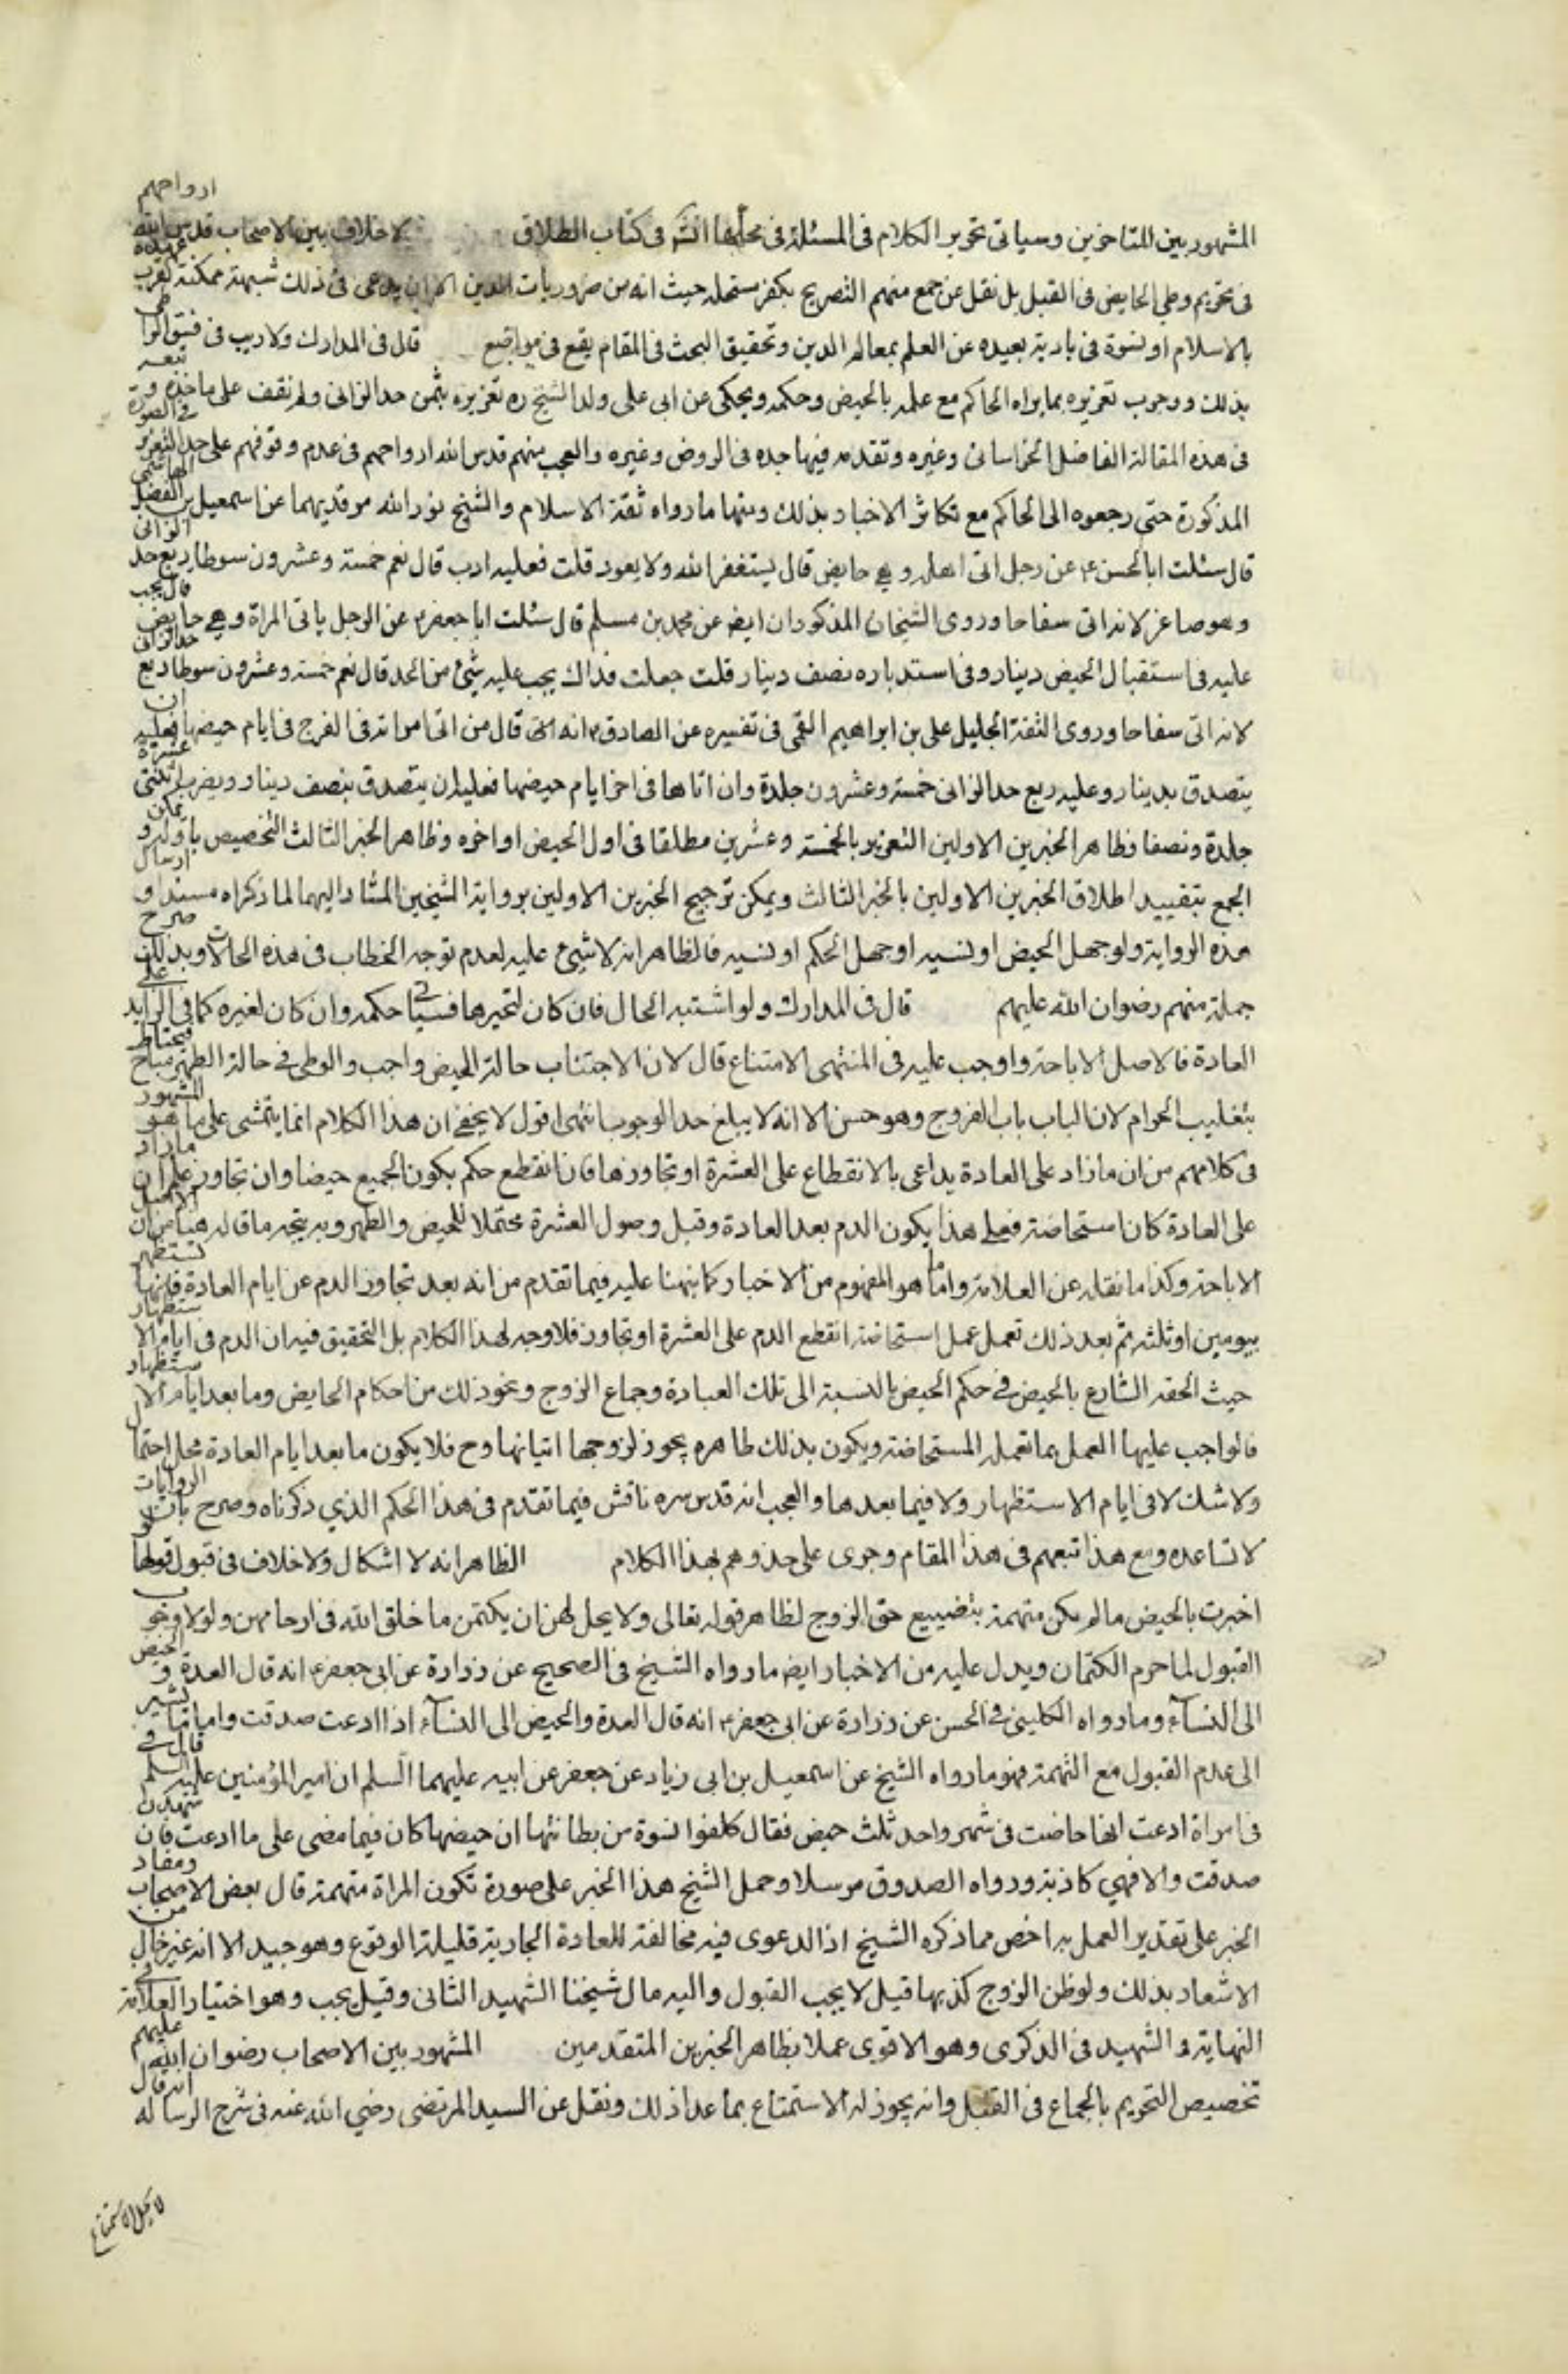 المشهور بين المتاخرين وسياتى تحرير الكلام فى المسئلة فى محلها انش فى كتاب الطلاق لا خلاف بين الاصحاب قدس الله ارواحهم
فى تحريم وطي الحايض فى القبل بل نقل عن جمع منهم التصريح بكفر مستحله حيث انه من ضروريات الدين الا ان يدعى فى ذلك شبهة ممكنة لقرب عهده
بالاسلام او نشوة فى بادية بعيده عن العلم بمعالم الدين وتحقيق البحث فى المقام يقع فى مواضع قال فى المدارك ولا ريب فى فسق الواطى
بذلك ووجوب تعزيره بما يراه الحاكم مع علمه بالحيض وحكمه ويحكى عن ابى على ولد الشيخ ره تعزيره بثمن حد الزانى ولم نقف على ماخذه وتبعه
فى هذه المقالة الفاضل الخراسانى وغيره وتقدمه فيها جده فى الروض وغيره والعجب منهم قدس الله ارواحهم فى عدم وقوفهم على حد التعزير فى الصورة
المذكورة حتى رجعوه الى الحاكم مع تكاثر الاخبار بذلك ومنها ما رواه ثقة الاسلام والشيخ نور الله مرقديهما عن اسمعيل بن الفضل الهاشمى
قال سئلت ابا الحسن ع عن رجل اتى اهله وهى حايض قال يستغفر الله ولا يعود قلت فعليه ادب قال نعم خمسة وعشرون سوطا ربع حد الزانى
وهو صاغر لانه اتى سفاحا وروى الشيخان المذكوران ايض عن محمد بن مسلم قال سئلت ابا جعفر ع عن الرجل ياتى المراة وهى حايض قال يجب
عليه فى استقبال الحيض دينار وفى استدباره نصف دينار قلت جعلت فداك يجب عليه شئ من الحد قال نعم خمسة وعشرون سوطا ربع حد الزانى
لانه اتى سفاحا وروى الثقة الجليل على بن ابراهيم القمى فى تفسيره عن الصادق ع انه قال من اتى امراته فى الفرج فى ايام حيضها فعليه ان
يتصدق بدينار وعليه ربع حد الزانى خمسة وعشرون جلدة وان اتاها فى اخر ايام حيضها فعليه ان يتصدق بنصف دينار ويضرب اثنتى عشرة
جلدة ونصفا وظاهر الخبرين الاولين التعزير بالخمسة وعشرين مطلقا فى اول الحيض او اخره وظاهر الخبر الثالث التخصيص باوله ويمكن
الجمع بتقييد اطلاق الخبرين الاولين بالخبر الثالث ويمكن ترجيح الخبرين الاولين برواية الشيخين المشار اليهما لما ذكراه مسندا وارسال
هذه الرواية ولو جهل الحيض او نسيه او جهل الحكم او نسيه فالظاهر انه لا شئ عليه لعدم توجه الخطاب فى هذه الحالات وبذلك صرح
جملة منهم رضوان الله عليهم قال فى المدارك ولو اشتبه الحال فان كان لتحيرها فسياتى حكمه وان كان لغيره كما فى الزايد على
العادة فالاصل الاباحة واوجب عليه فى المنتهى الامتناع قال لان الاجتناب حالة الحيض واجب والوطى فى حالة الطهر مباح فيحتاط
بتغليب الحرام لان الباب باب الفروج وهو حسن الا انه لا يبلغ حد الوجوب انتهى اقول لا يخفى ان هذا الكلام انما يتمشى على ما هو المشهور
فى كلامهم من ان ما زاد على العادة يراعى بالانقطاع على العشرة او تجاوزها فان انقطع حكم بكون الجميع حيضا وان تجاوز علم ان ما زاد
على العادة كان استحاضة فعلى هذا يكون الدم بعد العادة وقبل وصول العشرة محتملا للحيض والطهر وبه يتجه ما قاله هنا من ان الاصل
الاباحة وكذا ما نقله عن العلامة واما هو المفهوم من الاخبار كما نبهنا عليه فيما تقدم من انه بعد تجاوز الدم عن ايام العادة فانها تستظهر
بيومين او ثلثة ثم بعد ذلك تعمل عمل استحاضة انقطع الدم على العشرة او تجاوز فلا وجه لهذا الكلام بل التحقيق فيه ان الدم فى ايام الاستظهار
حيث الحقه الشارع بالحيض فى حكم الحيض بالنسبة الى تلك العبادة وجماع الزوج ونحو ذلك من احكام الحايض وما بعد ايام الاستظهار
فالواجب عليها العمل بما تعمله المستحاضة ويكون بذلك طاهره يجوز لزوجها اتيانها وح فلا يكون ما بعد ايام العادة محل احتمال
ولا شك لا فى ايام الاستظهار ولا فيما بعدها والعجب انه قدس سره ناقش فيما تقدم فى هذا الحكم الذي ذكرناه وصرح بان الروايات
لا تساعده ومع هذا تبعهم فى هذا المقام وجرى على حذوهم بهذا الكلام الظاهر انه لا اشكال ولا خلاف فى قبول قولها لو
اخبرت بالحيض ما لم يكن متهمة بتضييع حق الزوج لظاهر قوله تعالى ولا يحل لهن ان يكتمن ما خلق الله فى ارحامهن ولولا وجوب
القبول لما حرم الكتمان ويدل عليه من الاخبار ايض ما رواه الشيخ فى الصحيح عن زرارة عن ابى جعفر ع انه قال العدة والحيض
الى النساء وما رواه الكلينى فى الحسن عن زرارة عن ابى جعفر ع انه قال العدة والحيض الى النساء اذا ادعت صدقت واما ما يشير
الى عدم القبول مع التهمة فهو ما رواه الشيخ عن اسمعيل بن ابى زياد عن جعفر عن ابيه عليهما السلم ان امير المؤمنين عليه السلم قال فى
فى امراة ادعت انها حاضت فى شهر واحد ثلث حيض فقال كلفوا نسوة من بطانتها ان حيضها كان فيما مضى على ما ادعت فان شهدن
صدقت والا فهي كاذبة ورواه الصدوق مرسلا وحمل الشيخ هذا الخبر على صورة تكون المراة متهمة قال بعض الاصحاب ومفاد
الخبر على تقدير العمل به اخص مما ذكره الشيخ اذ الدعوى فيه مخالفة للعادة الجارية قليلة الوقوع وهو جيد الا انه غير خال من
الاشعار بذلك ولو ظن الزوج كذبها قيل لا يجب القبول واليه مال شيخنا الشهيد الثانى وقيل يجب وهو اختيار العلامة فى
النهاية والشهيد فى الذكرى وهو الاقوى عملا بظاهر الخبرين المتقدمين المشهور بين الاصحاب رضوان الله عليهم
تخصيص التحريم بالجماع فى القبل وانه يجوز له الاستمتاع بما عدا ذلك ونقل عن السيد المرتضى رضي الله عنه فى شرح الرساله انه قال
لا يحل الاستمتاع